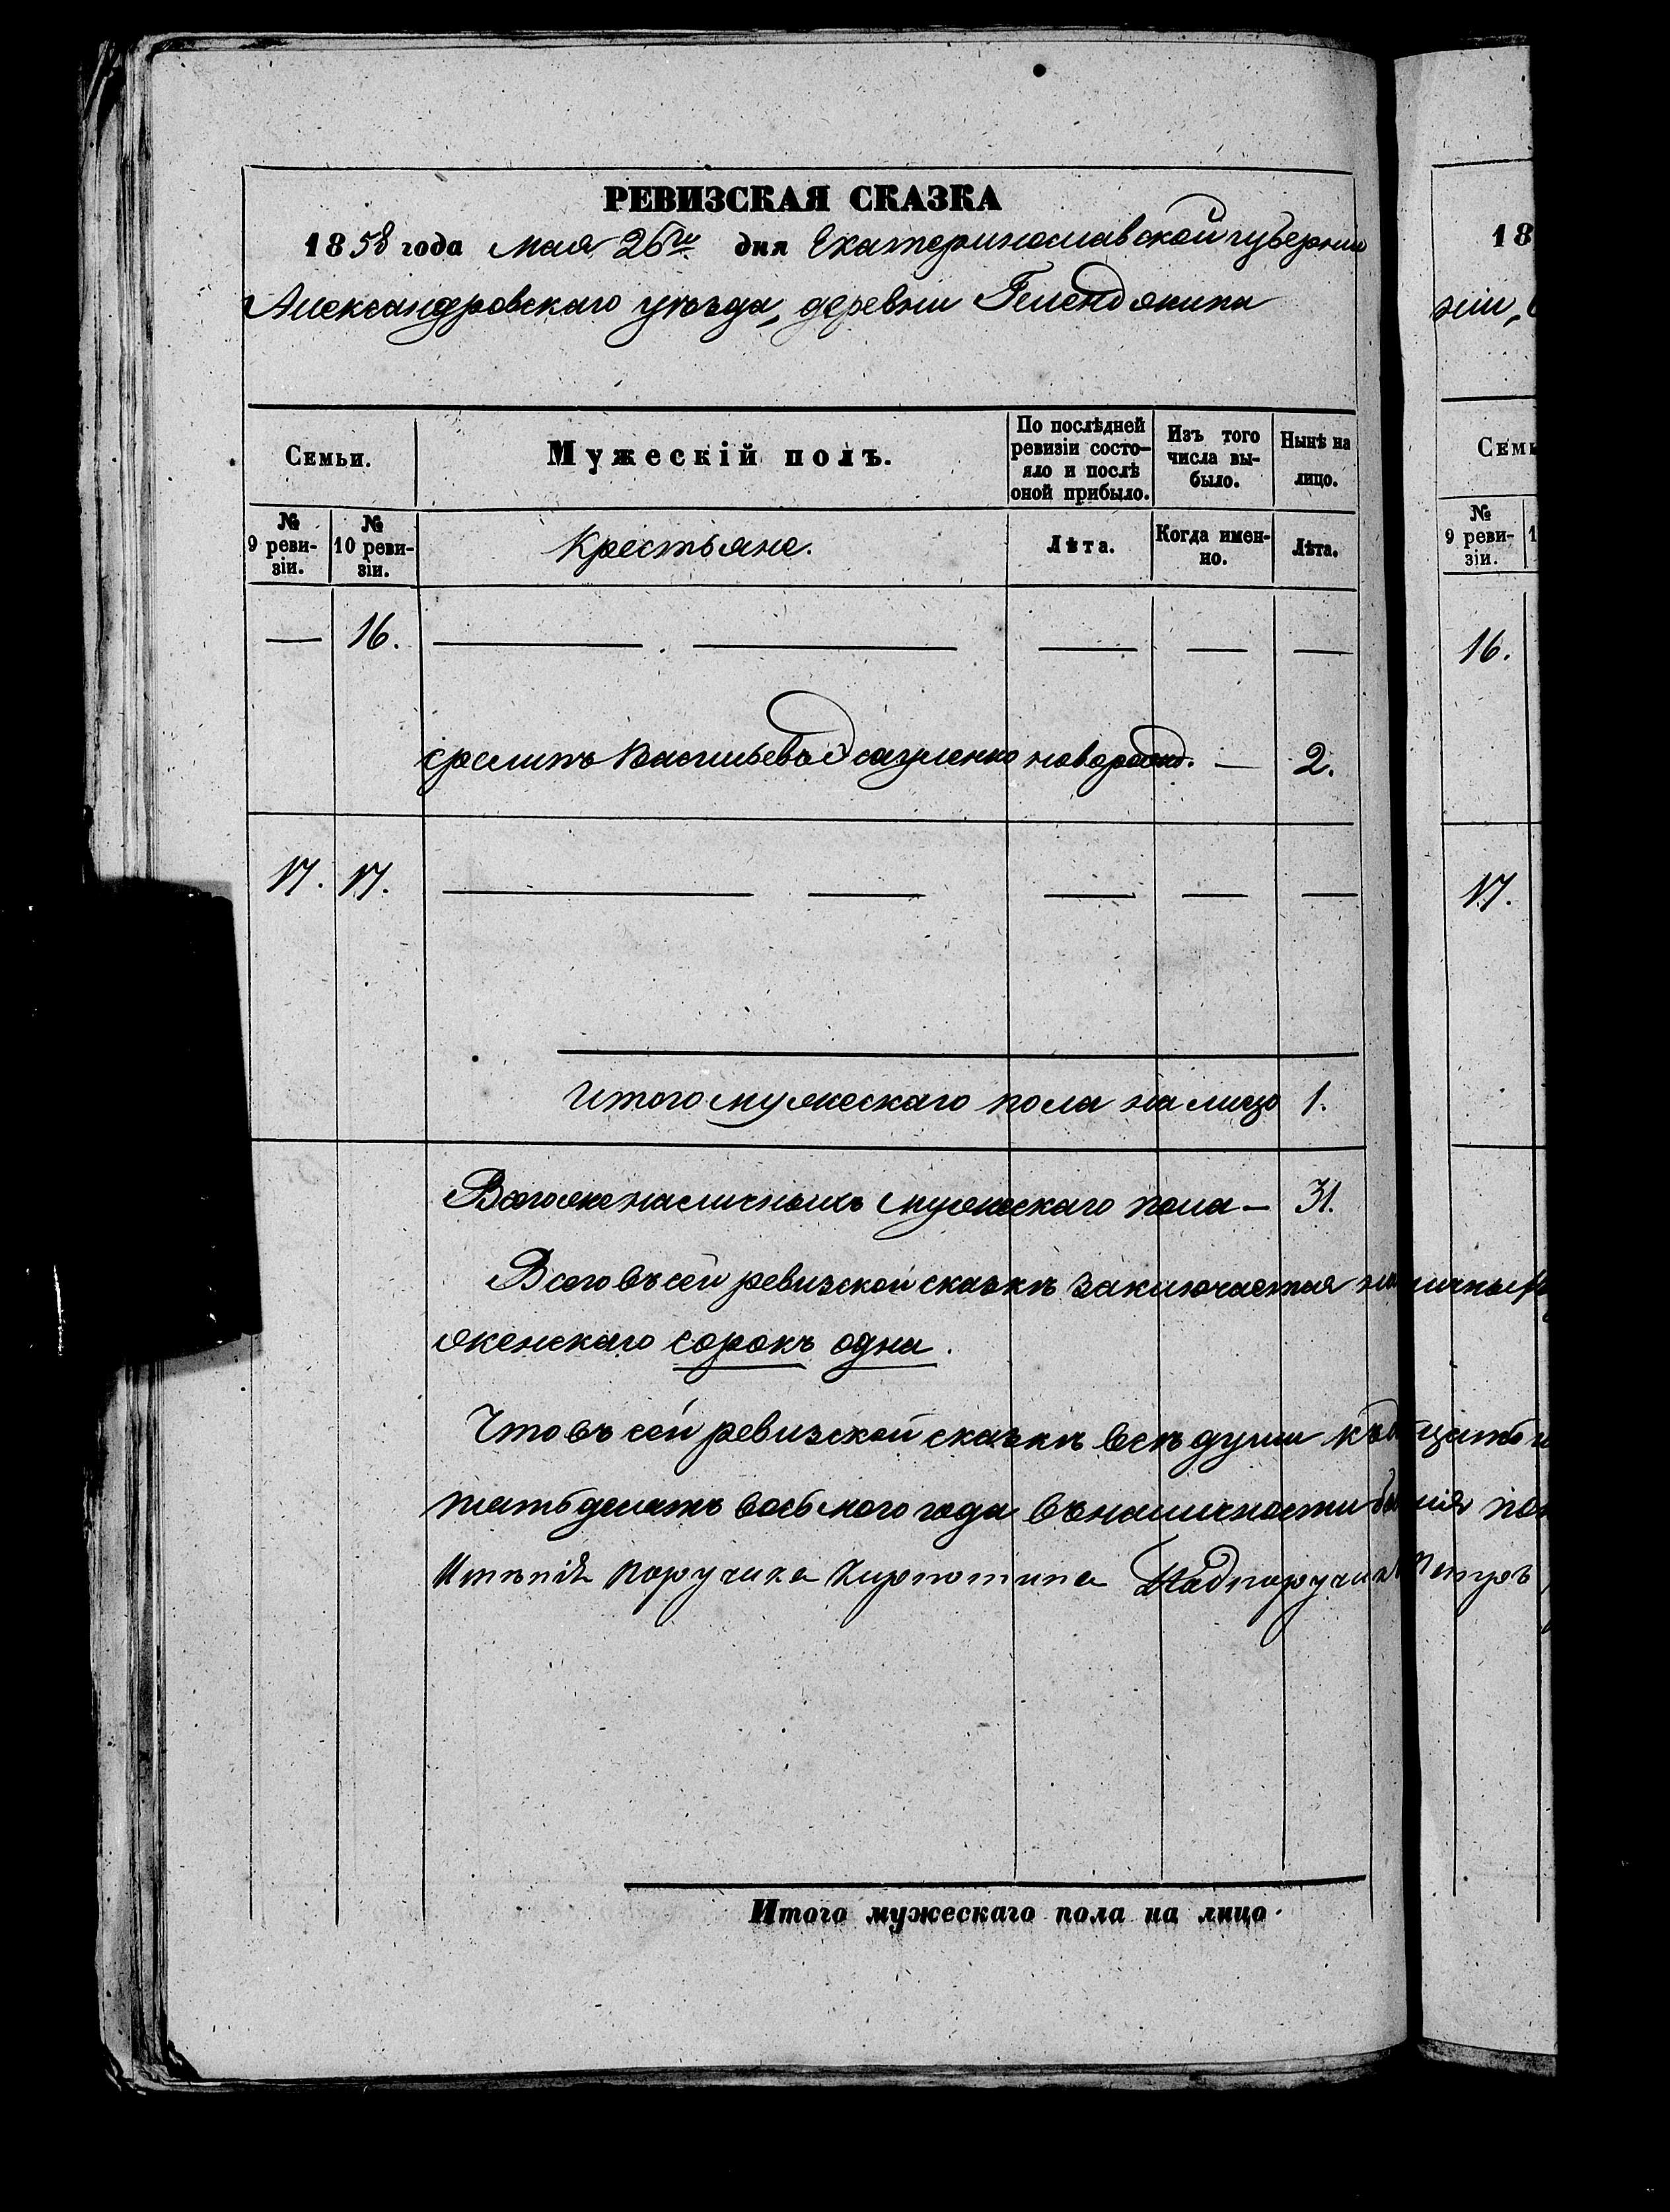 РЕВИЗСКАЯ СКАЗКА
1858 года Мая 26го дня Екатеринославской губернии
Александровскаго уѣзда, деревни
Семьи.
Мужескій полъ.
По послѣдней ревизіи состояло и послѣ оной прибыло.
Изъ того числа выбыло.
Нынѣ на лицо.
№ 9 ревизіи.
№ 10 ревизіи.
Крестьяне.
Лѣта.
Когда именно.
Лѣта.
— 16. — . — — — —
Васильевъ новорожд. — 2.
17. 17. — — — — —
Итого мужескаго пола на лицо 1.
Всего же наличныхъ мужескаго пола — 31.
Всего въ сей ревизской сказкѣ заключается
женскаго сорокъ одна.
Что въ сей ревизской сказкѣ всѣ души
пятьдесятъ восьмого года въ наличности
Имѣнія Поручика Подпоручикъ Петръ
Итого мужескаго пола на лицо.
18
ніи,
Семь
№ 9 ревизіи.
1
16.
17.